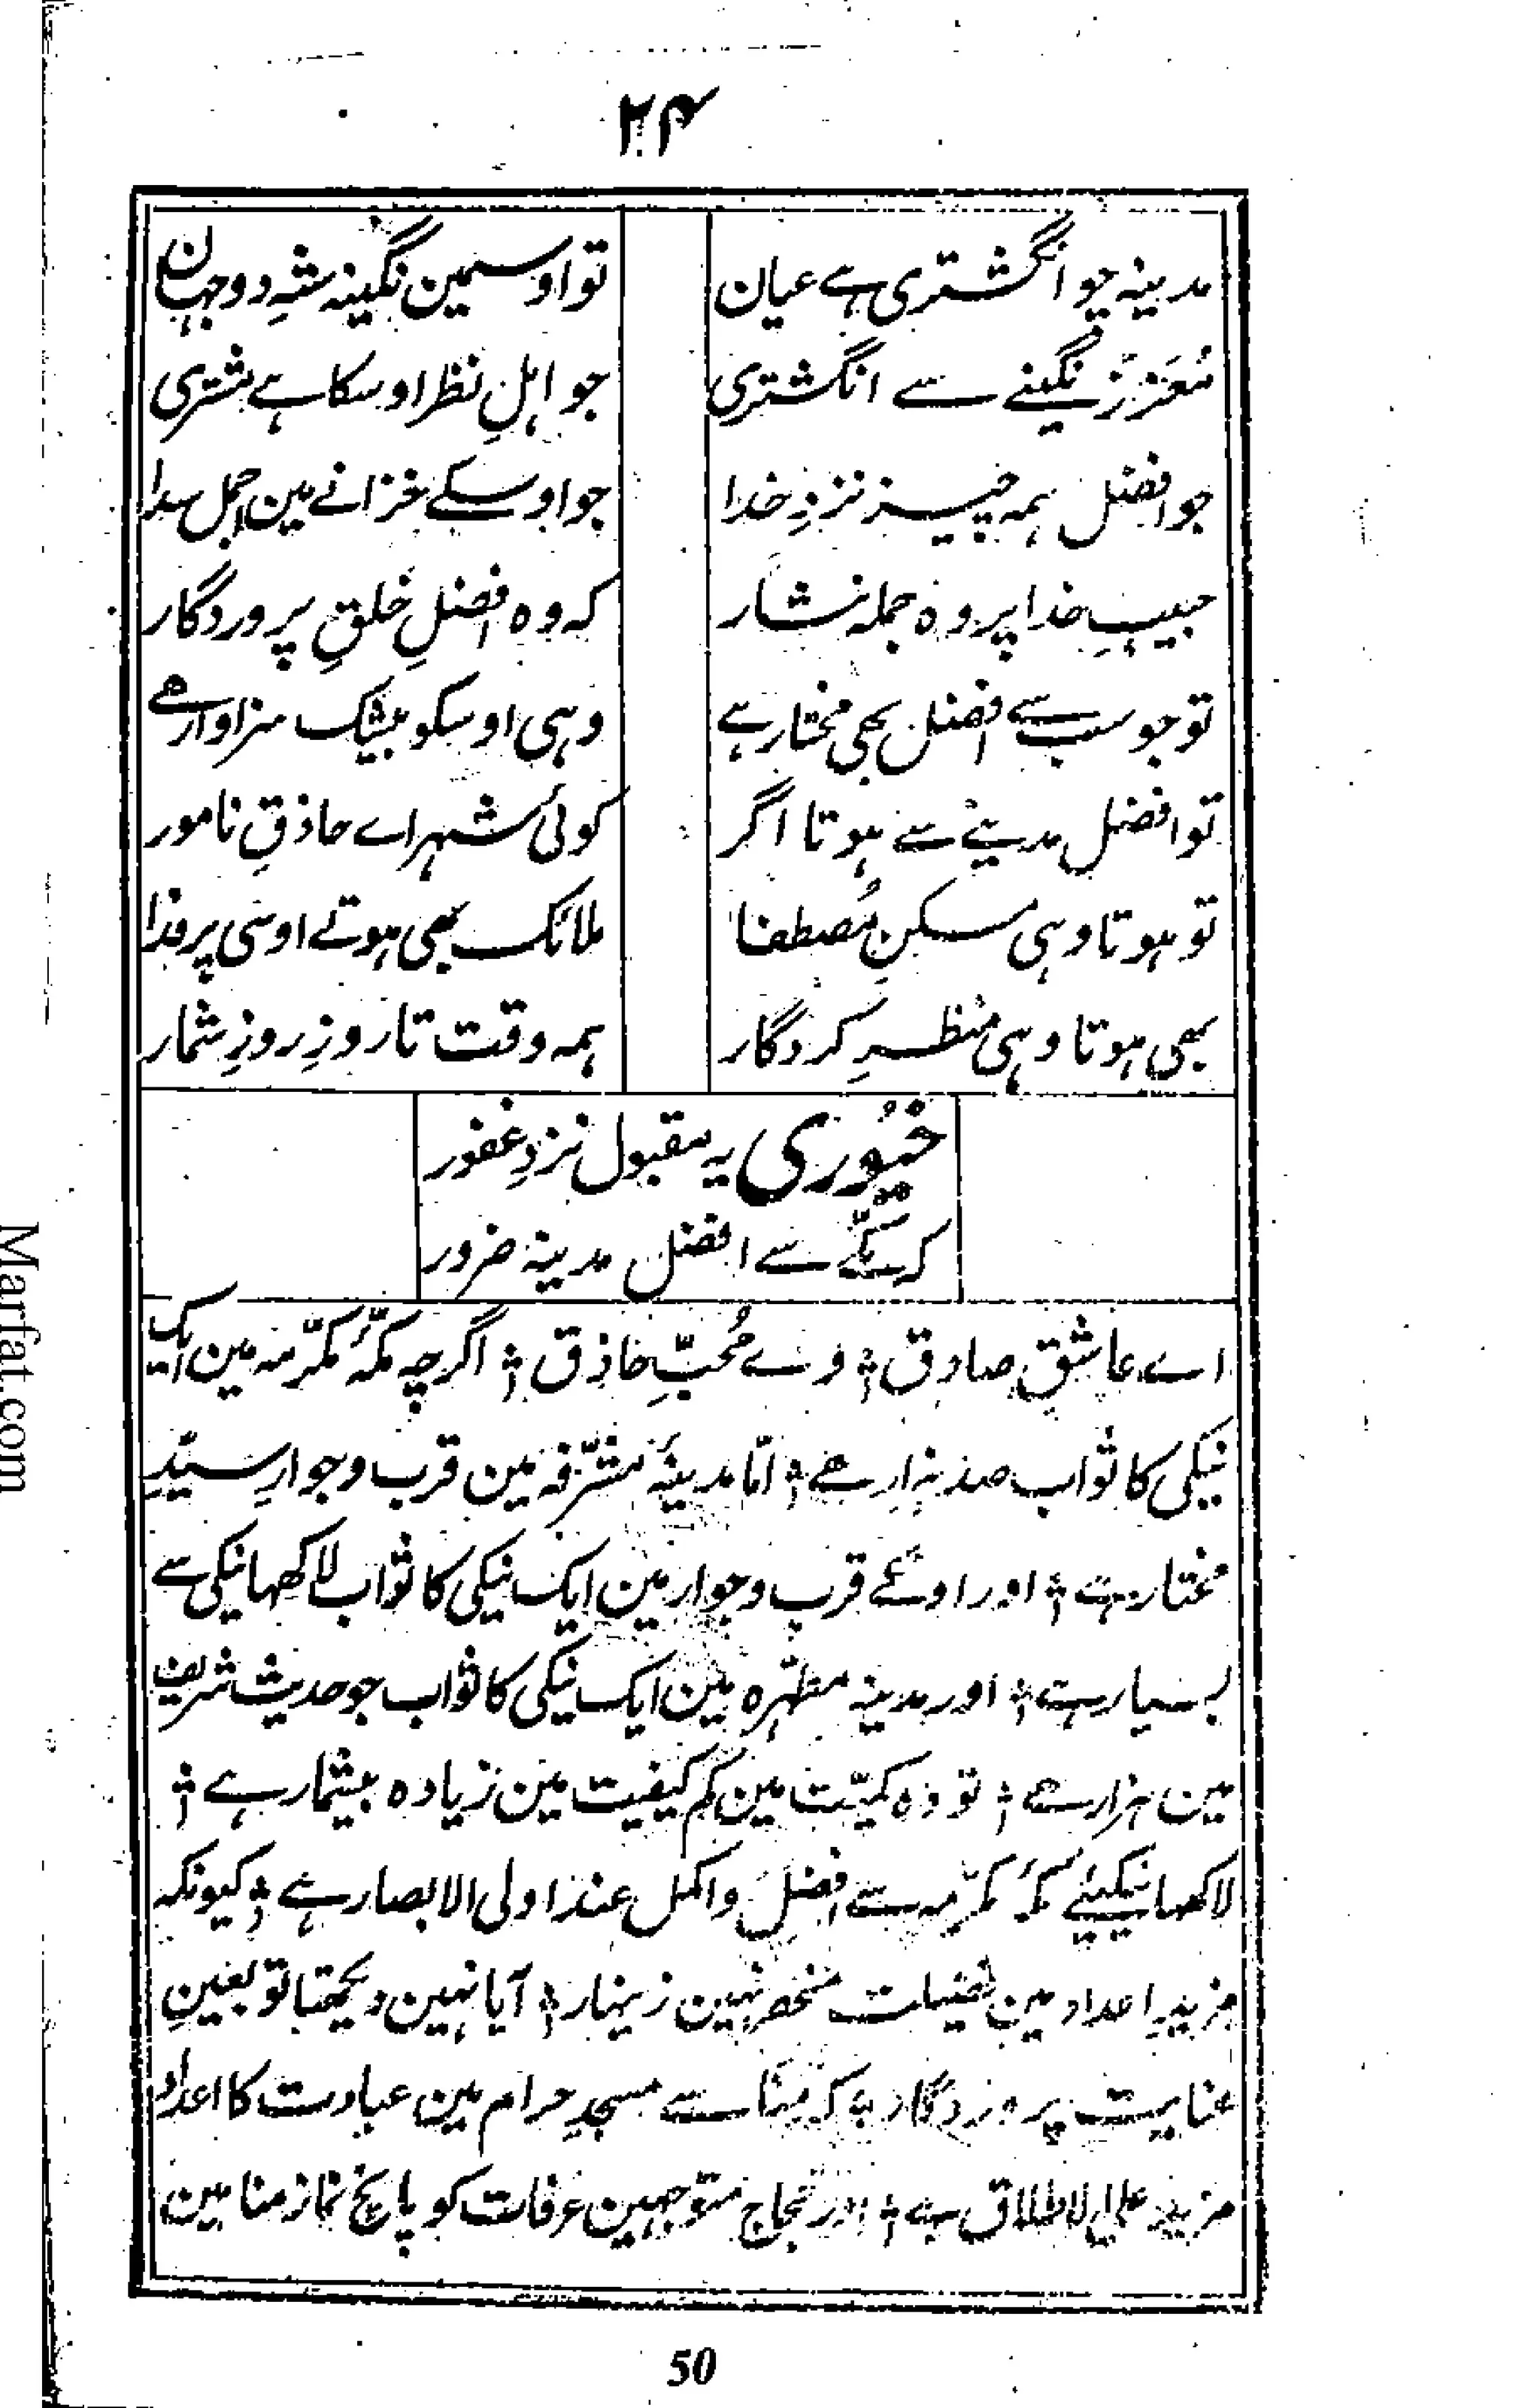 ۲۴
مدینہ جو انگشتری ہے عیان تو اوسمین نگینہ شہِ دو جہان
مُعَزز نگینے سے انگشتری جو اہلِ نظر اوسکا ہے مشتری
جو افضل ہمہ چیز نزدِ خدا جو اوسکے خزانے مین اجمل سدا
حبیبِ خدا پر وہ جملہ نثار کہ وہ افضلِ خلقِ پروردگار
تو جو سب سے افضل بھی مختار ہے وہی اوسکو بیشک سزاوار ہے
تو افضل مدینے سے ہوتا اگر کوئی شہر اے حاذقِ نامور
تو ہوتا وہی مسکنِ مُصطفا ملائک بھی ہوتے اوسی پر فدا
بھی ہوتا وہی منظرِ کردگار ہمہ وقت تا روزِ روزِ شمار
خیُوری یہ مقبول نزدِ غفور
کہ مکّے سے افضل مدینہ ضرور
اے عاشقِ صادق ؛ وے مُحبِّ حاذق ؛ اگرچہ مکّہٴ مکرّمہ مین ایک
نیکی کا ثواب صد ہزار ہے ؛ امّا مدینہٴ مشرّفہ مین قرب و جوارِ سیّدِ
مختار ہے ؛ اور اوسکے قرب و جوار مین ایک نیکی کا ثواب لاکھہا نیکی سے
بسیار ہے ؛ اور مدینہ مطہّرہ مین ایک نیکی کا ثواب جو حدیث شریف
مین ہزار ہے ؛ تو وہ کمیّت مین کم کیفیت مین زیادہ بیشمار ہے ؛
لاکھہا نیکیئے مکہٴ مکرّمہ سے افضل و اکمل عند اولی الابصار ہے ؛ کیونکہ
مزیدِ اعداد مین فضیلت منحصر نہین زینہار ؛ آیا نہین دیکھتا تو بعینِ
عنایت پروردگار ؛ کہ مِنا سے مسجدِ حرام مین عبادت کا اعداد
مزید علی الاطلاق ہے ؛ اور حجاج متوجہین عرفات کو پانچ نماز منا مین
50
Marfat.com